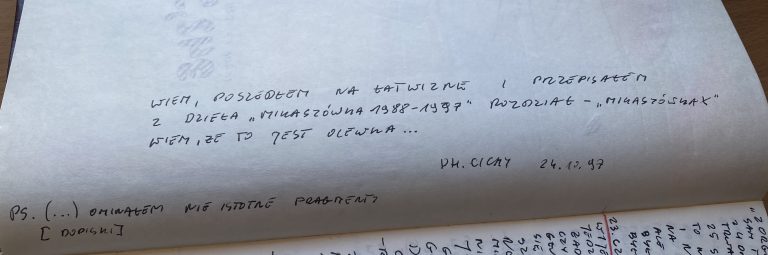 WIEM, POSZEDŁEM NA ŁATWIZNĘ I PRZEPISAŁEM
Z DZIEŁA „MIKASZÓWKA 1988-1997" ROZDZIAŁ - „MIKASZÓWKA X"
WIEM, ŻE TO JEST OLEWKA...
DH. CICHY 24.10.97
PS. (...) OMINĄŁEM NIE ISTOTNE FRAGMENTY
[DOPISKI]